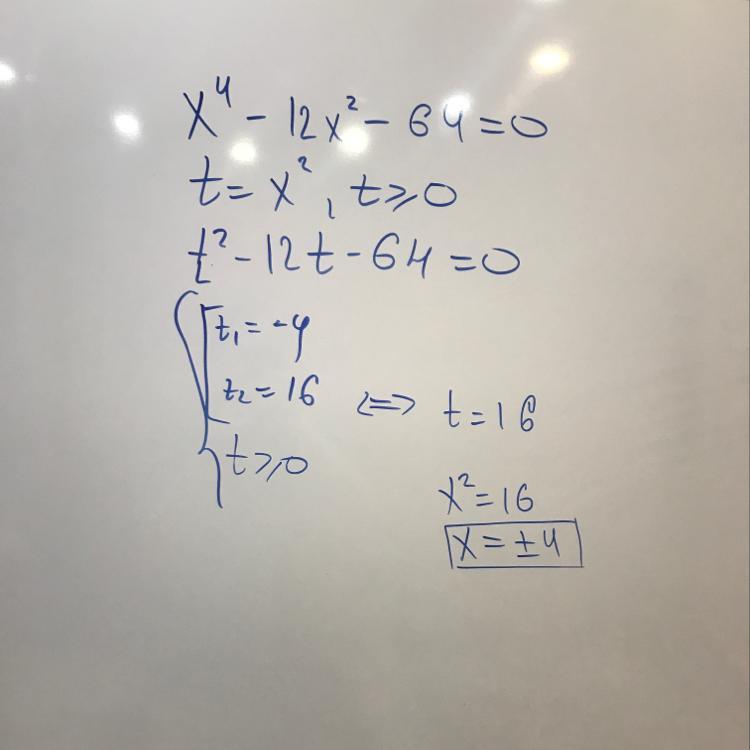 x⁴ - 12x² - 64 = 0
t = x², t ⩾ 0
t² - 12t - 64 = 0
t₁ = -4
t₂ = 16 <=> t = 16
t ⩾ 0
x² = 16
x = ±4